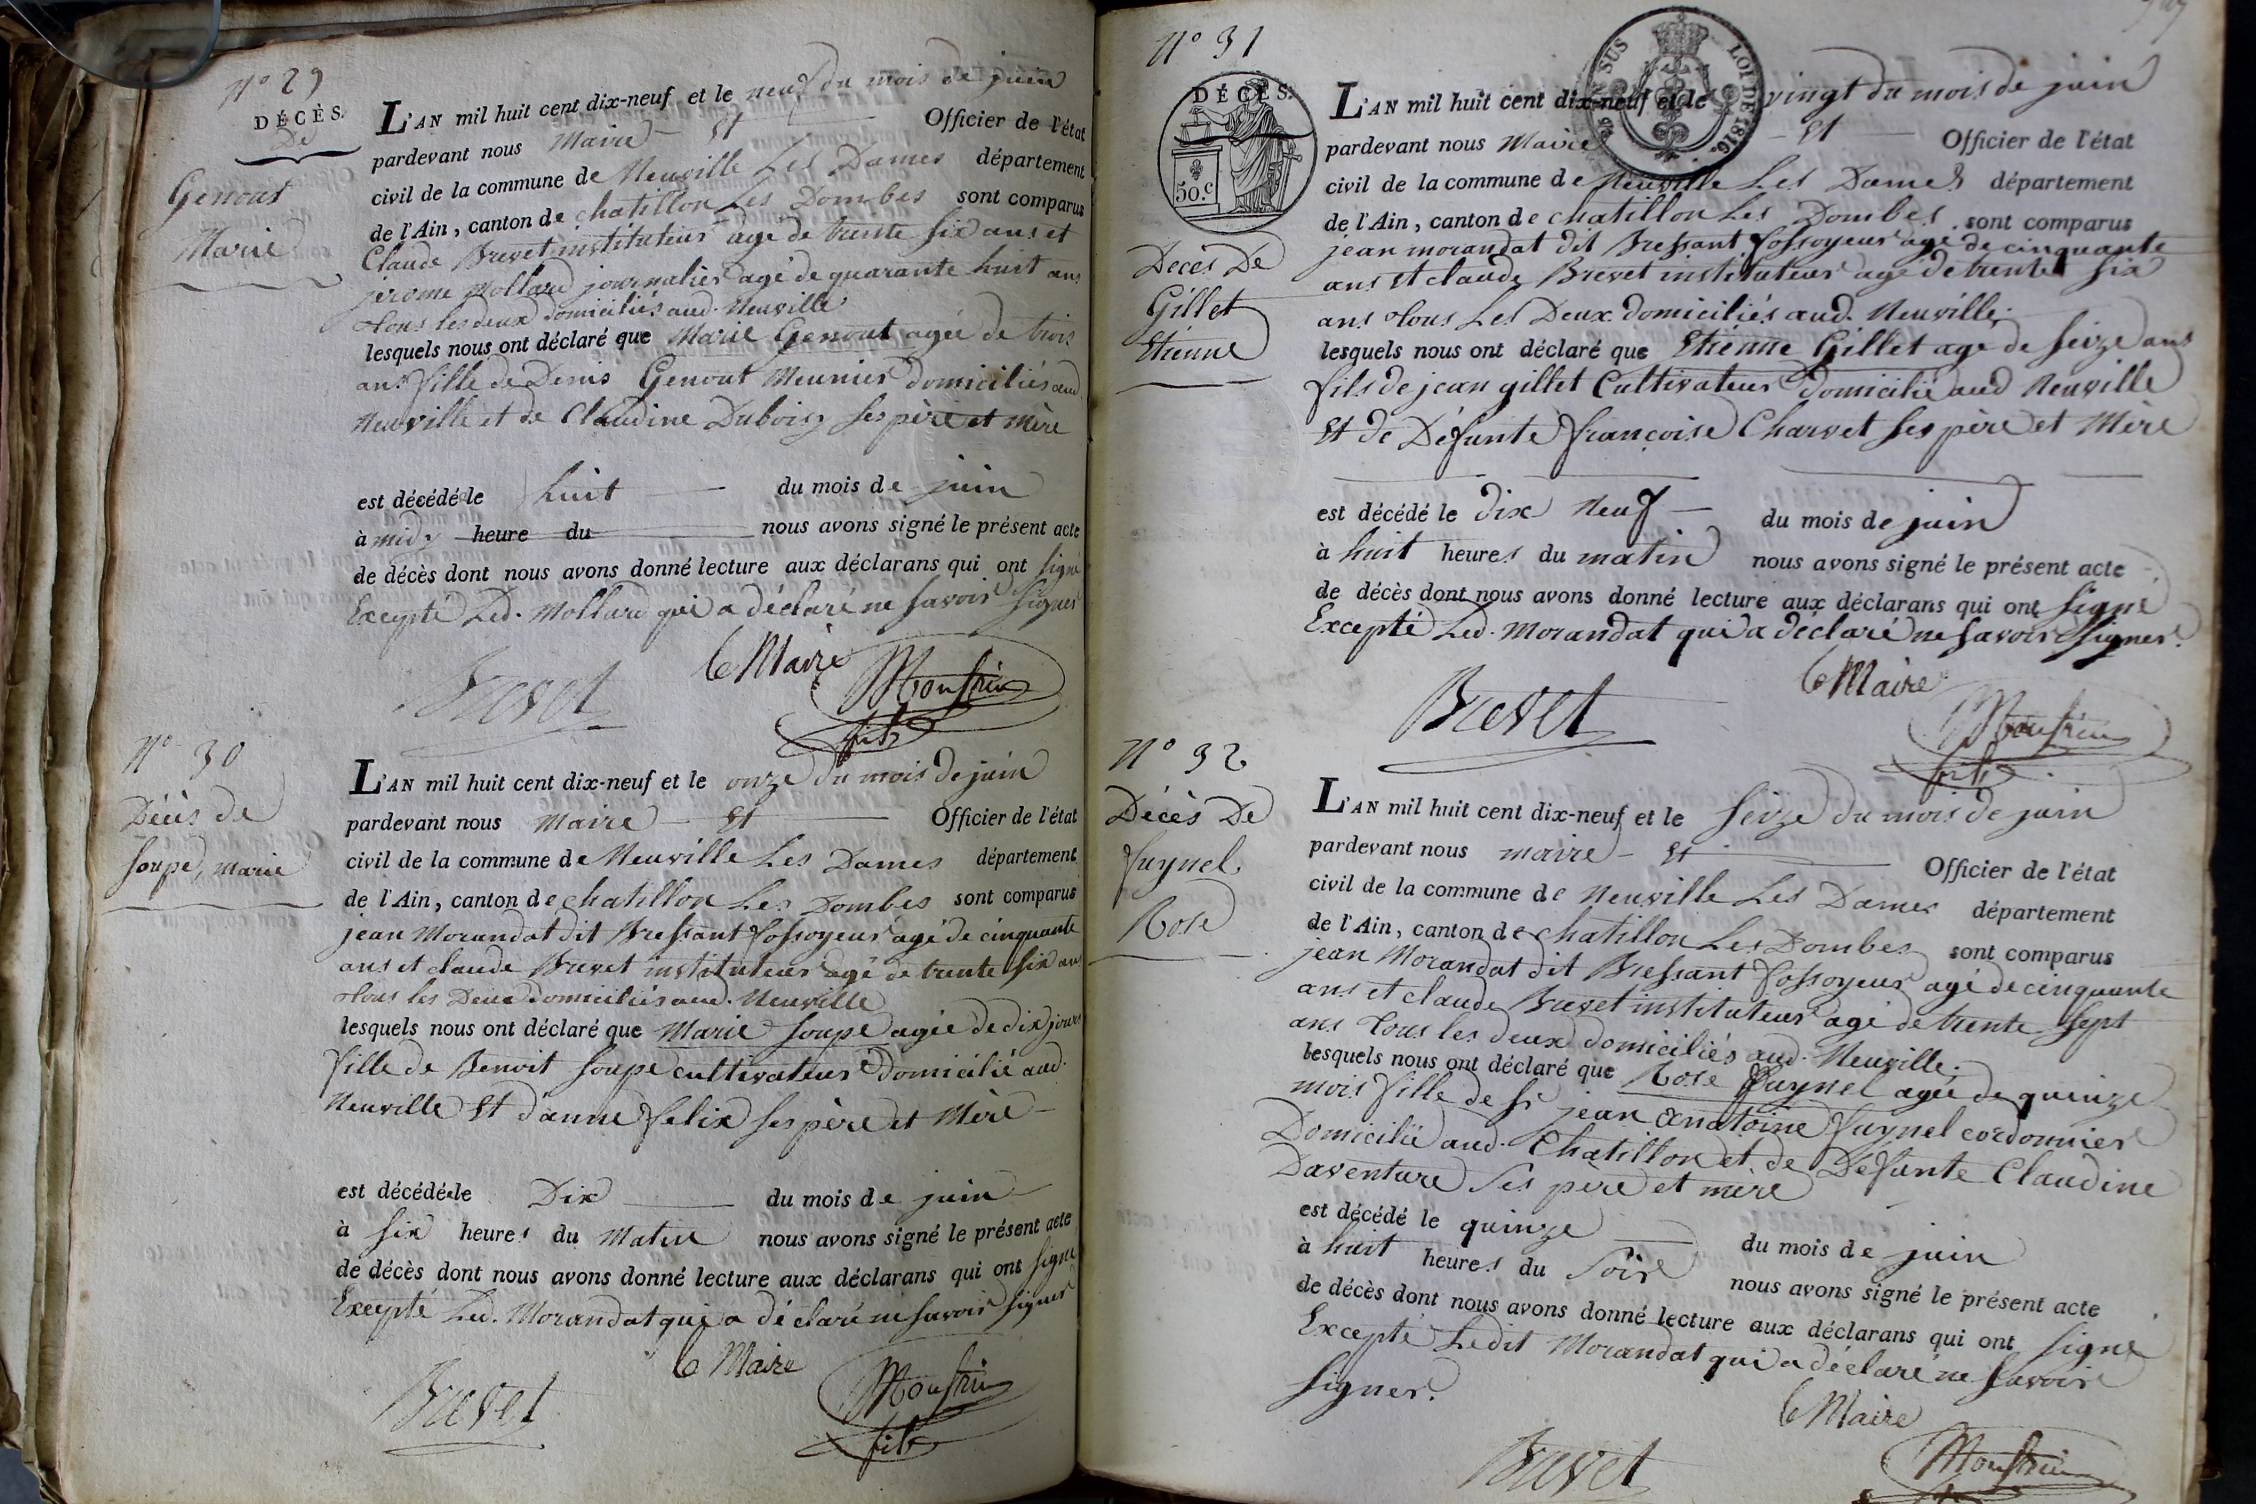 N° 29
DÉCÈS.
De
Genout
Marie
L'AN mil huit cent dix-neuf et le neuf du mois de juin
pardevant nous Maire Et Officier de l'état
civil de la commune de Neuville Les Dames département
de l'Ain, canton de chatillon Les Dombes sont comparus
Claude Brevet instituteur agé de trente six ans et
jerome Mollard journalier agé de quarante huit ans
tous les deux domiciliés aud. Neuville
lesquels nous ont déclaré que Marie Genout agée de trois
ans fille de Denis Genout Meunier domiciliés aud.
Neuville et de Claudine Dubois ses père et mère
est décédée le huit du mois de juin
à midy heure du nous avons signé le présent acte
de décès dont nous avons donné lecture aux déclarans qui ont signé
Excepté Led. Mollard qui a déclaré ne savoir signer
Le Maire
Brevet
fils
N° 30
Décès de
Soupe, marie
L'AN mil huit cent dix-neuf et le onze du mois de juin
pardevant nous Maire Et Officier de l'état
civil de la commune de Neuville Les Dames département
de l'Ain, canton de chatillon Les Dombes sont comparus
jean Morandat dit Bressant fossoyeur agé de cinquante
ans et claude Brevet instituteur agé de trente six ans
tous les Deux domiciliés aud. Neuville
lesquels nous ont déclaré que Marie Soupe agée de dix jours
fille de Benoit Soupe cultivateur domicilié aud.
Neuville Et d'anne felix ses père et Mère
est décédée le Dix du mois de juin
à Six heures du Matin nous avons signé le présent acte
de décès dont nous avons donné lecture aux déclarans qui ont signé
Excepté Led. Morandat qui a déclaré ne savoir signer
Le Maire
Brevet
fils
N° 31
DÉCÈS.
50.c
SUS LOI DE 1816.
Décès De
Gillet
Etienne
L'AN mil huit cent dix-neuf et le vingt du mois de juin
pardevant nous Maire Et Officier de l'état
civil de la commune de Neuville Les Dames département
de l'Ain, canton de chatillon Les Dombes sont comparus
jean morandat dit Bressant fossoyeur agé de cinquante
ans Et claude Brevet instituteur agé de trente six
ans tous Les Deux domiciliés aud. Neuville.
lesquels nous ont déclaré que Etienne Gillet age de seize ans
fils de jean gillet Cultivateur domicilié aud Neuville
Et de Défunte françoise Charvet ses père et Mère
est décédé le dix Neuf du mois de juin
à huit heures du matin nous avons signé le présent acte
de décès dont nous avons donné lecture aux déclarans qui ont signé
Excepté Led. Morandat qui a déclaré ne savoir signer.
Le Maire
Brevet
fils
N° 32
Décès De
fuynel
Rose
L'AN mil huit cent dix-neuf et le seize du mois de juin
pardevant nous maire Et Officier de l'état
civil de la commune de Neuville Les Dames département
de l'Ain, canton de chatillon Les Dombes sont comparus
jean Morandat dit Bressant fossoyeur agé de cinquante
ans et claude Brevet instituteur agé de trente sept
ans tous les deux domiciliés aud. Neuville.
lesquels nous ont déclaré que Rose fuynel agée de quinze
mois fille de Sr jean anatoine fuynel cordonnier
Domicilié aud. Chatillon et de Défunte Claudine
Daventure Ses père et mère
est décédé le quinze du mois de juin
à huit heures du Soir nous avons signé le présent acte
de décès dont nous avons donné lecture aux déclarans qui ont signé
Excepté Ledit Morandat qui a déclaré ne savoir
signer.
Le Maire
Brevet